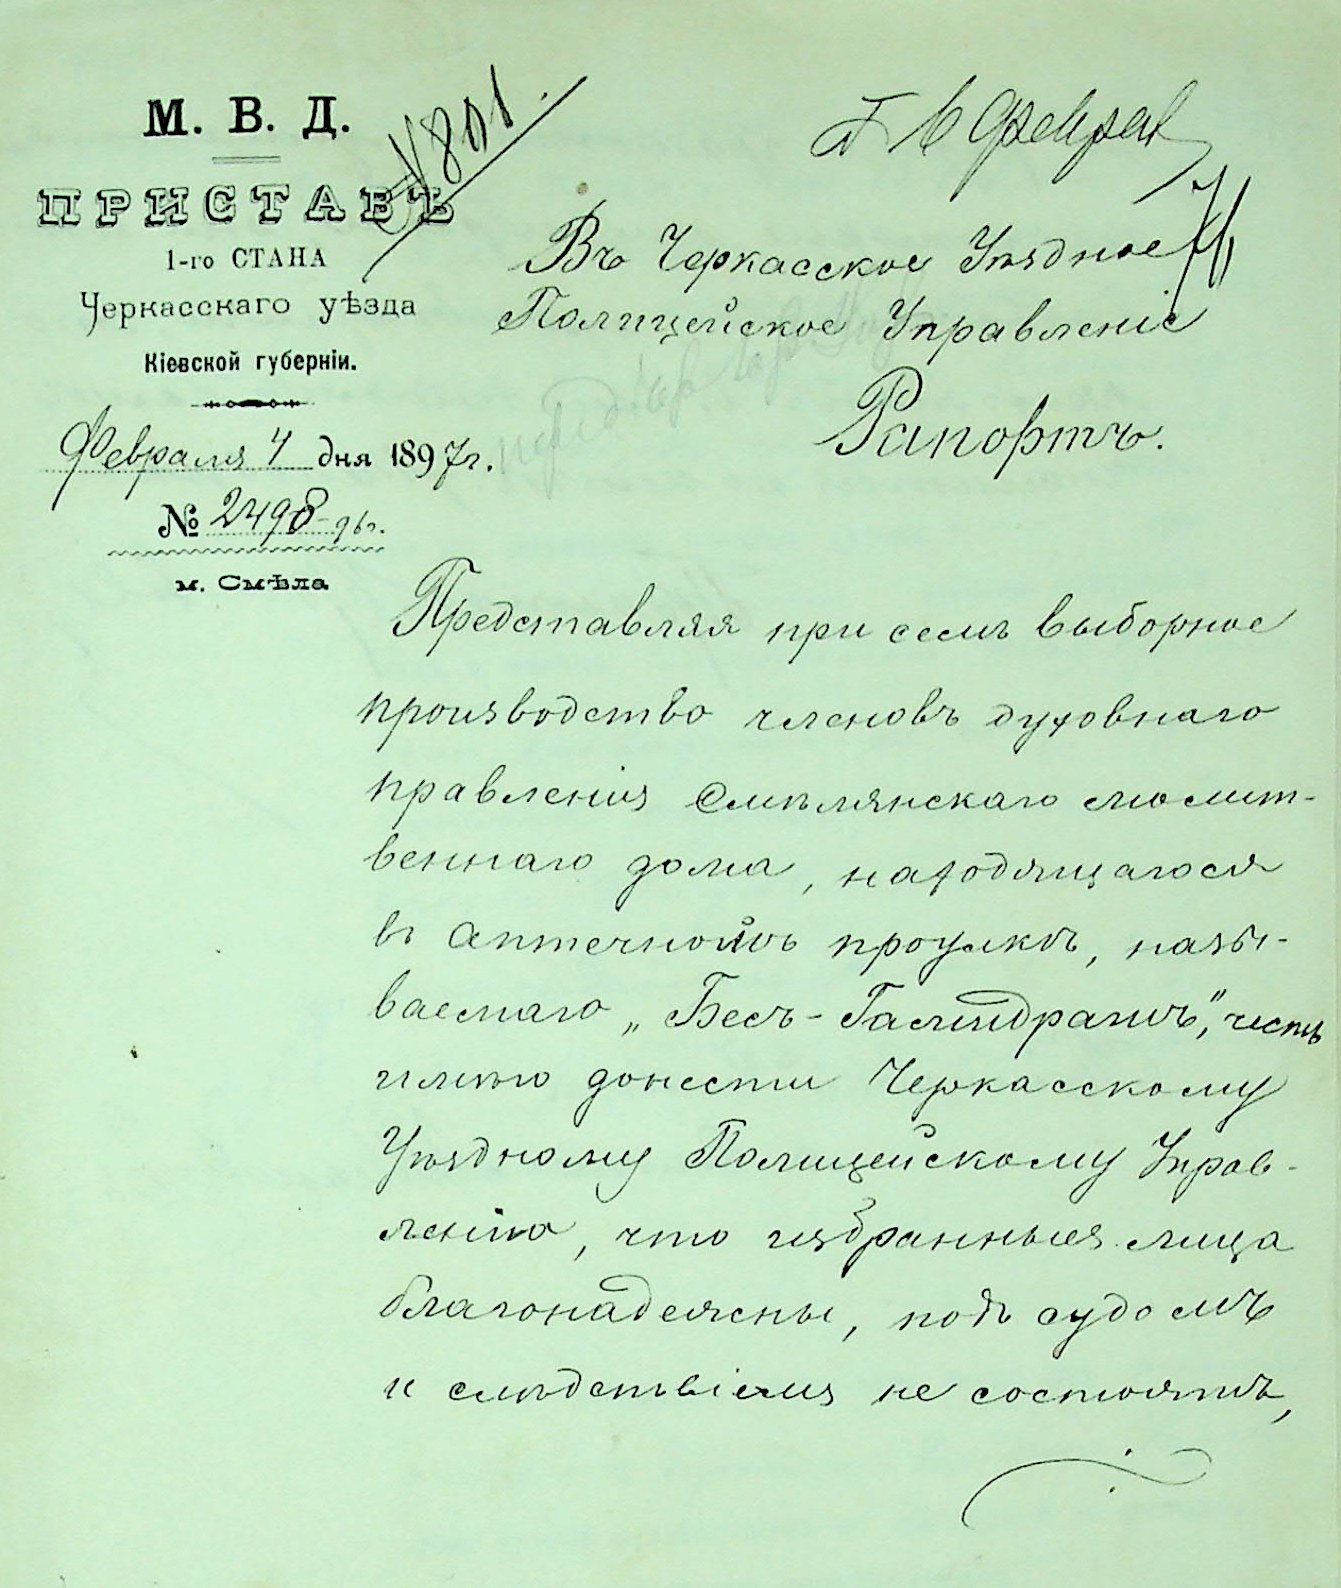 М. В. Д.
ПРИСТАВЪ
1-го СТАНА
Черкасскаго уѣзда
Кіевской губерніи.
Февраля 4 дня 1897 г.
№ 2498 - 96 г.
м. Смѣла
801.
6 Феврал
Въ Черкасское Уѣздное
Полицейское Управленіе
Рапортъ.
Представляя при семъ выборное
производство членовъ духовнаго
правленія Смѣлянскаго молит-
веннаго дома, находящагося
въ Аптечномъ проулкѣ, назы-
ваемаго „Бесъ-Гамидрашъ", честь
имѣю донести Черкасскому
Уѣздному Полицейскому Управ-
ленію, что избранныя лица
благонадежны, подъ судомъ
и слѣдствіемъ не состоятъ,